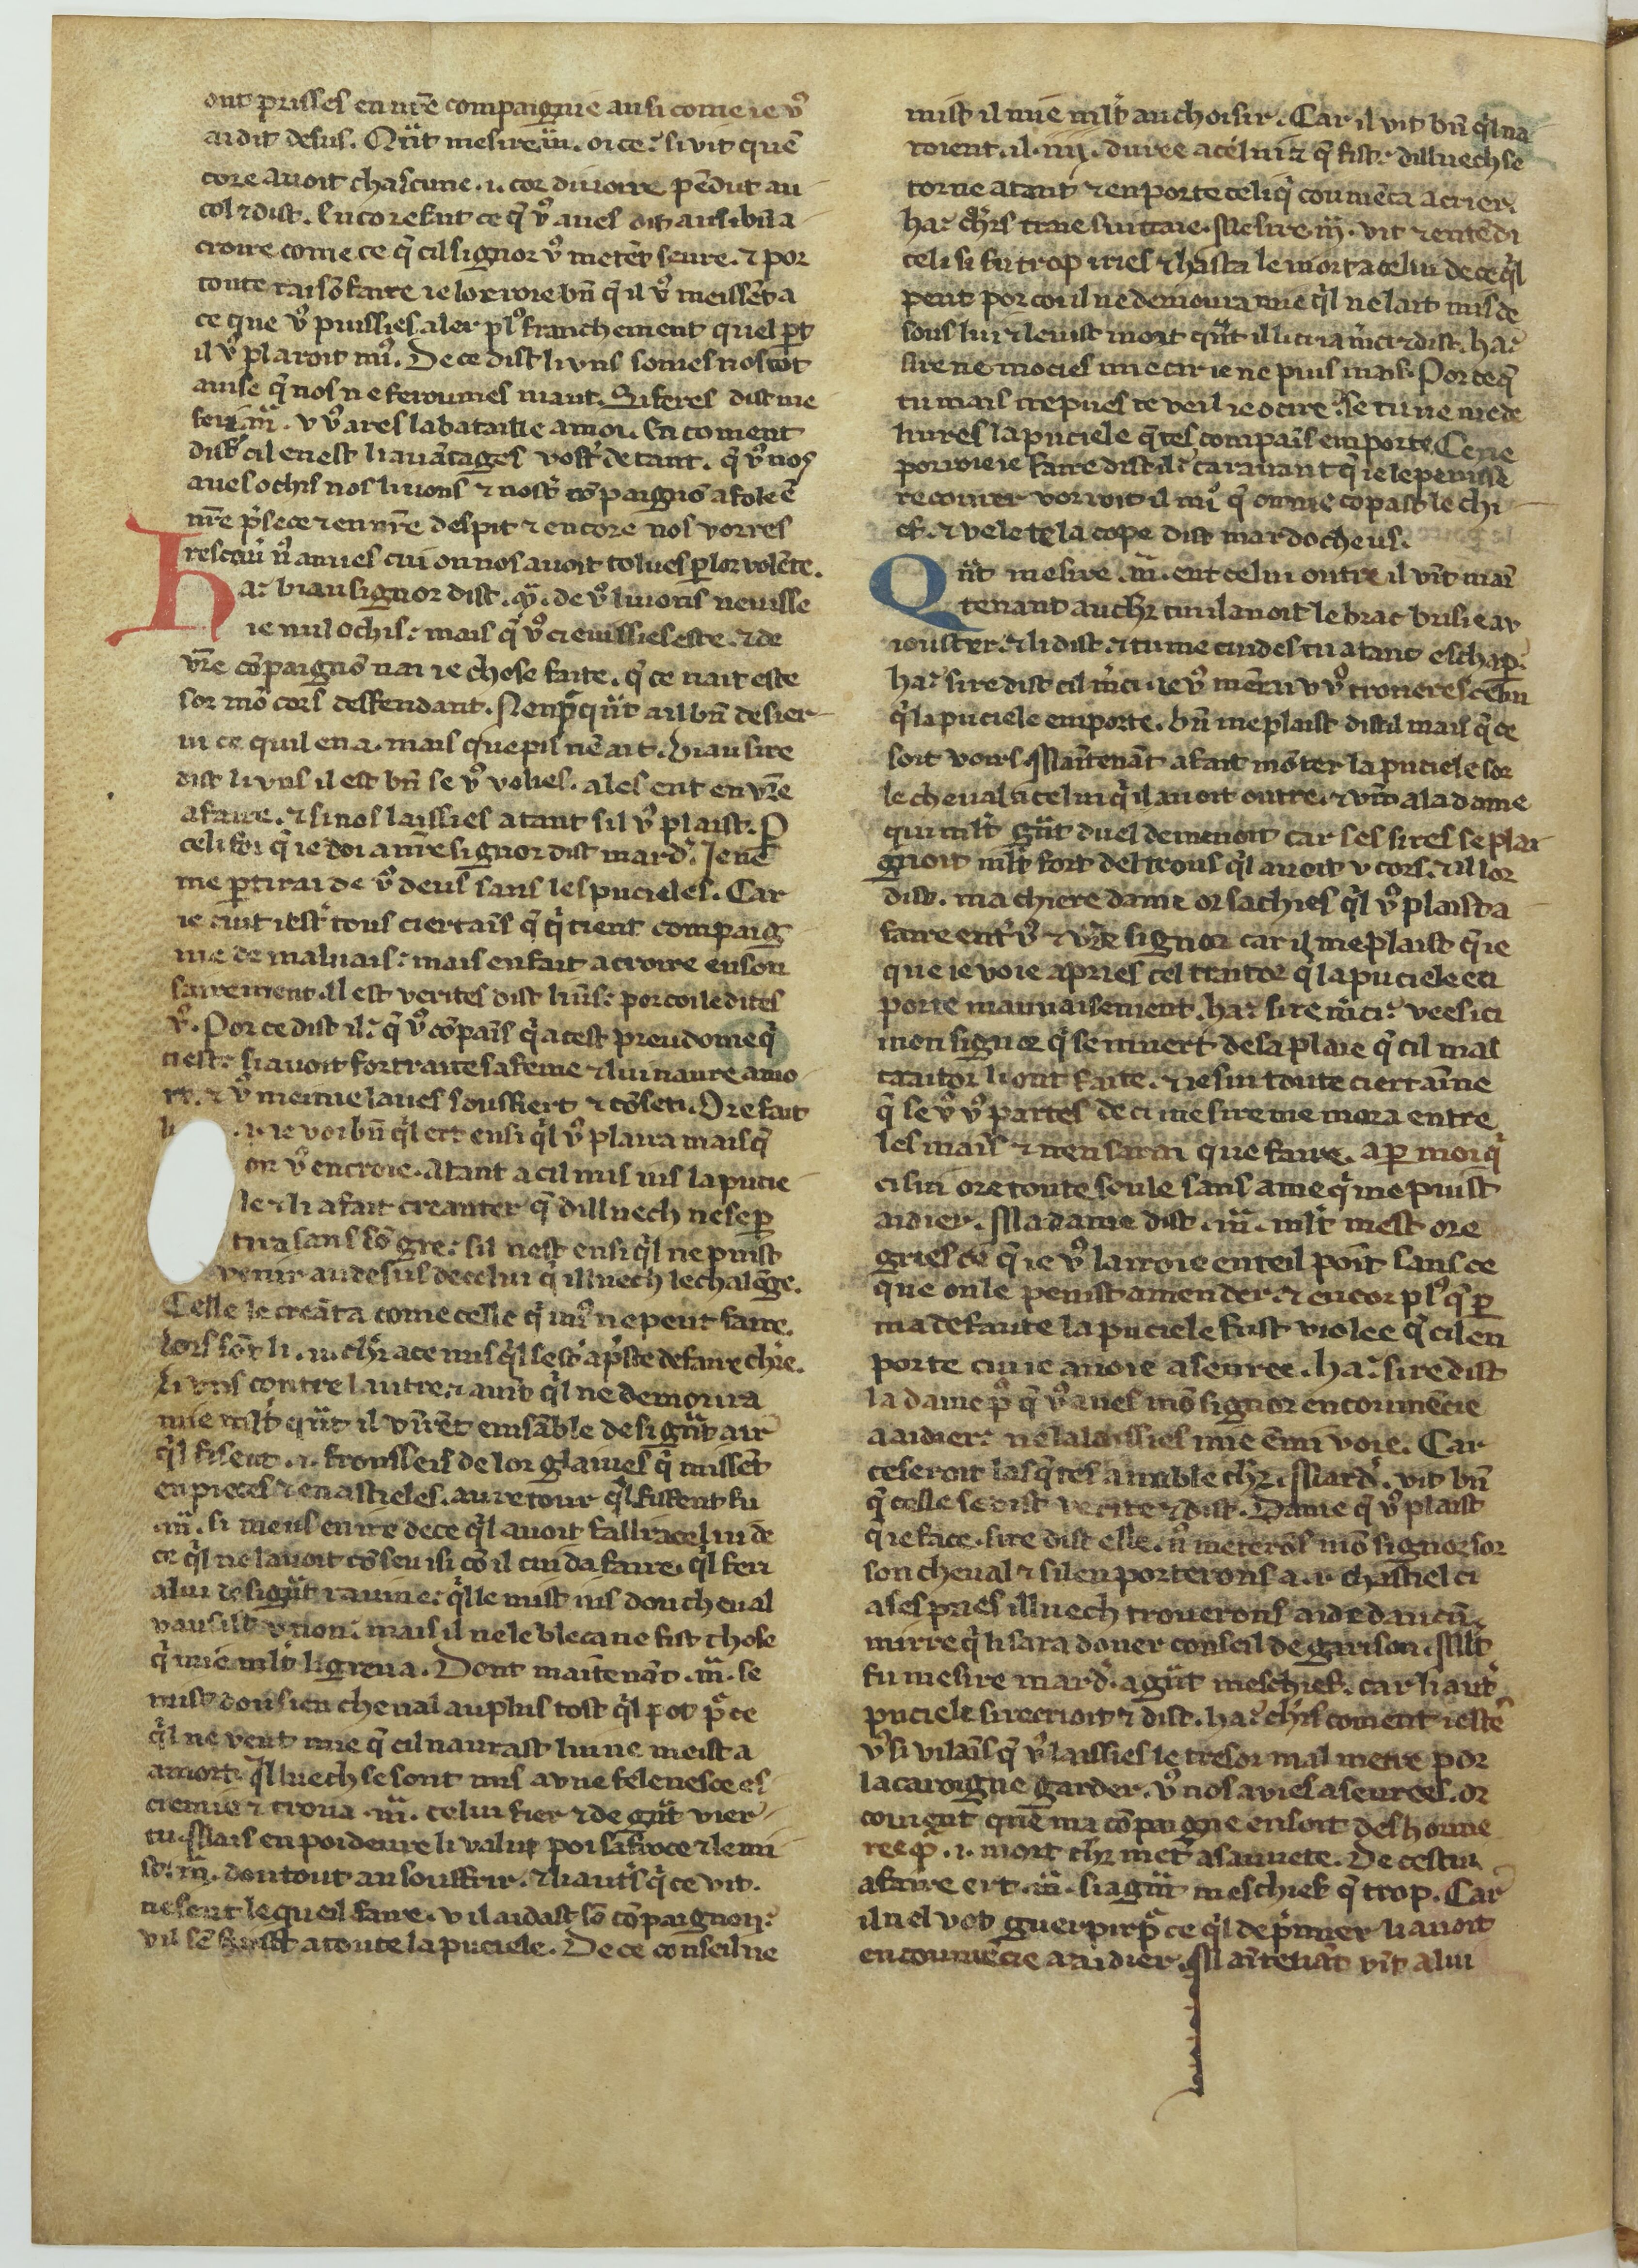 ont prisses en nr̄e compaignie ausi come ie v9
ai dit desus. Qn̄t mesire .m̄. oi ce: si vit quē
core auoit chascune .i. cor diuoire pēdut au
col ⁊ dist. Encore fut ce q̄ v9 aues dit ausi bn̄ a
croire come ce q̄ cil signor v9 metēt seure. ⁊ por
toute raisō faire ie lor uoie bn̄ q̄ il v9 meissēt a
ce que v9 puissies aler pl9 franchement quel ꝑt
il v9 plaroit mi9. De ce dist li vns somes nos tot
auise q̄ nos ne feroumes niant. Si feres dist me
sire .m̄. v v9 ares la bataille a moi. En coment
dist cil en est li auātages vostr̄ de tant. q̄ v9 nos
aues ochis nos liuons ⁊ nostr̄ cōpaignō afole ē
nr̄e p̄sece ⁊ en nr̄e despit ⁊ encore nos vorres
n̄ amies cui on nos auoit tolues ꝑ lor volēte.
Ha: biau signor dist .m̄. de v9 liuons neuisse
ie nul ochis: mais q̄ v9 ci euissies este. ⁊ de
vr̄e cōpaignō nai ie chose faite. q̄ ce nait este
sor mō cors deffendant. Nenp̄qn̄t a il bn̄ desier
ui ce quil en a. mais que pis nē ait. Biau sire
dist li vns il est bn̄ se v9 voles. ales ent en vr̄e
afaire. ⁊ si nos laissies atant sil v9 plaist. P
celi foi q̄ ie doi a mr̄e signor dist mard'. Ie ne
me ꝑtirai de v9 deus sans les pucieles. Car
ie cuit iestr̄ tous ciertaīs q̄ q̄ tient compaig
nie de maluais: mais en fait acroire en son
sairement. Il est verites dist li ūs: por coi le dites
v9. Por ce dist il: q̄ v9 cōpaīs q̄ acest preudome q̄
ci est: li auoit fortraite sa feme ⁊ lui naure a mo
rt. ⁊ v9 meimes laues souffert ⁊ cōsenti. Dire fait
ie voi bn̄ q̄l ert ensi q̄l v9 plaira mais q̄
on v9 en croie. Atant a cil mis ius la pucie
le ⁊ li a fait creanter q̄ dilluech ne se ꝑ
tira sans sō gre: sil nest ensi q̄l ne puist
venir au desus de celui q̄ illuech le chalēge.
Celle le creāta come celle q̄ mi9 ne peut faire.
Lors sōt li .ii. chr̄ a ce mis q̄l se sōt ap̄ste de faire chīe.
Li vns contre lautre. ⁊ auīt q̄l ne demoura
mie mlt̄ qn̄t il vīrēt ensāble de si gn̄t air
q̄l fisent .i. frousseis de lor glaiues q̄ missēt
en pieces ⁊ en astieles. au retour q̄l fissent fu
.m̄. si mens en ire de ce q̄l auoit falli a celui de
ce q̄l ne lauoit cōseu isi cō il cuida faire. q̄l feri
a lui de si gn̄t rauine: q̄lle mist ius dou cheual
vausist v non: mais il ne le bleca ne fist chose
q̄ mie mlt̄ li greua. Dont maītenāt .m̄. se
mist dou sien cheual au plus tost q̄l pot p̄ ce
q̄l ne veut mie q̄ cil naurast lui ne meist a
a mort. Illuech se sont mis a vne felenesce es
cremie ⁊ troua .m̄. celui fier ⁊ de gn̄t vier
tu. Mais en poi deure li valut poi sa force ⁊ le mi
st .m̄. dou tout au souffrir. ⁊ li autr̄s q̄ ce vit.
ne seut le queil faire. v il aidast sō cōpaignon:
v il sē fuist a toute la puciele. De ce conseil ne
mist il mie mlt̄ au choisir. Car il vit bn̄ q̄l na
roient .il. .iiij. duree a celui ⁊ q̄ fist. dilluech se
torne atant ⁊ enporte celi q̄ coumēca a crier.
ha: chr̄s traie sui traie. Mesire .m̄. vit ⁊ entēdi
celi si fu trop iries ⁊ hasta le mort a celui de ce q̄l
peut por coi il ne demoura mie q̄l ne lait mis de
sous lui ⁊ leuist mort qn̄t il li cria m̄ci ⁊ dist. ha:
sire ne mocies mie car ie ne puis mais. Por ce q̄
tu mais ne pues te veil ie ocire. Se tu ne me de
liures la puciele q̄ tes compaīs emporte. Ce ne
porroie ie faire dist il: car auant q̄ ie le peuisse
recouurer vorroit il mi9 q̄ on me copast le chi
ef. ⁊ ve le te la cope dist mardocheus.
Qn̄t mesire .m̄. ent celui outre il vīt maī
tenant au chr̄ cui il auoit le brac brisie au
iouster. ⁊ li dist. ⁊ tu me cuides tu atant eschaꝑ.
ha: sire dist cil m̄ci. ie v9 mērai v v9 troueres celui
q̄ la puciele emporte. bn̄ me plaist dist il mais q̄ ce
soit voirs. Maītenāt a fait mōter la puciele sor
le cheual a celui q̄ il auoit outre. ⁊ vīt a la dame
qui mlt̄ gn̄t duel demenoit car ses sires se plai
gnoit mlt̄ fort del trous q̄l auoit v cors. ⁊ il lor
dist. ma chiere dame or sachies q̄l v9 plaist a
faire entr̄ v9 ⁊ vr̄e signor car il me plaist q̄ ie
que ie voie apries cel traitor q̄ la puciele en
porte mauuaisement. ha: sire m̄ci: vees ci
mon signor q̄ se muert de sa plaie q̄ cil mal
traitor li ont faite. ⁊ ie sui toute ciertaīne
q̄ se v9 v9 partes de ci mesire me mora entre
les mais ⁊ nen sarai que faire. a ꝑ moi q̄
ci sui ore toute seule sans ame q̄ me puist
aidier. Madame dist .m̄. mlt̄ mest ore
gries ce q̄ ie v9 lairoie en teil poīt sans ce
que on le peuist amender. ⁊ encor pl9 q̄ ꝑ
ma defaute la puciele fust violee q̄ cil en
porte cui ie auoie aseuree. ha: sire dist
la dame p9 q̄ v9 aues mō signor encoumēcie
a aidier: ne le laissies mie ēmi voie. Car
ce seroit lasq̄tes a nuble chr̄. Mard'. vit bn̄
q̄ celle se dist verite ⁊ dist. Dame q̄ v9 plaist
q̄ ie face. sire dist elle. n9 meterōs mō signor sor
son cheual ⁊ si len porterons a .i. chastiel ci
ases pries illuech trouerons aide daucū
mirre q̄ li sara doner conseil de garison. Mlt̄
fu mesire mard'. a gn̄t meschief. car li autr̄
puciele si recrioit ⁊ dist. ha: chr̄s coment iestē
v9 si vilaīs q̄ v9 laissies le tresor mal metre por
la carongne garder. v9 nos avies aseurees. or
couient quē ma cōpaigne en soit deshonne
ree ꝑ .i. mort chr̄ metr̄ a sauuete. De cestui
afaire ert .m̄. si a gn̄t meschief q̄ trop. Car
il nel vot guerpir p̄ ce q̄l de p̄mier li auoit
encoumēcie a aidier. Maītenāt vīt a lui